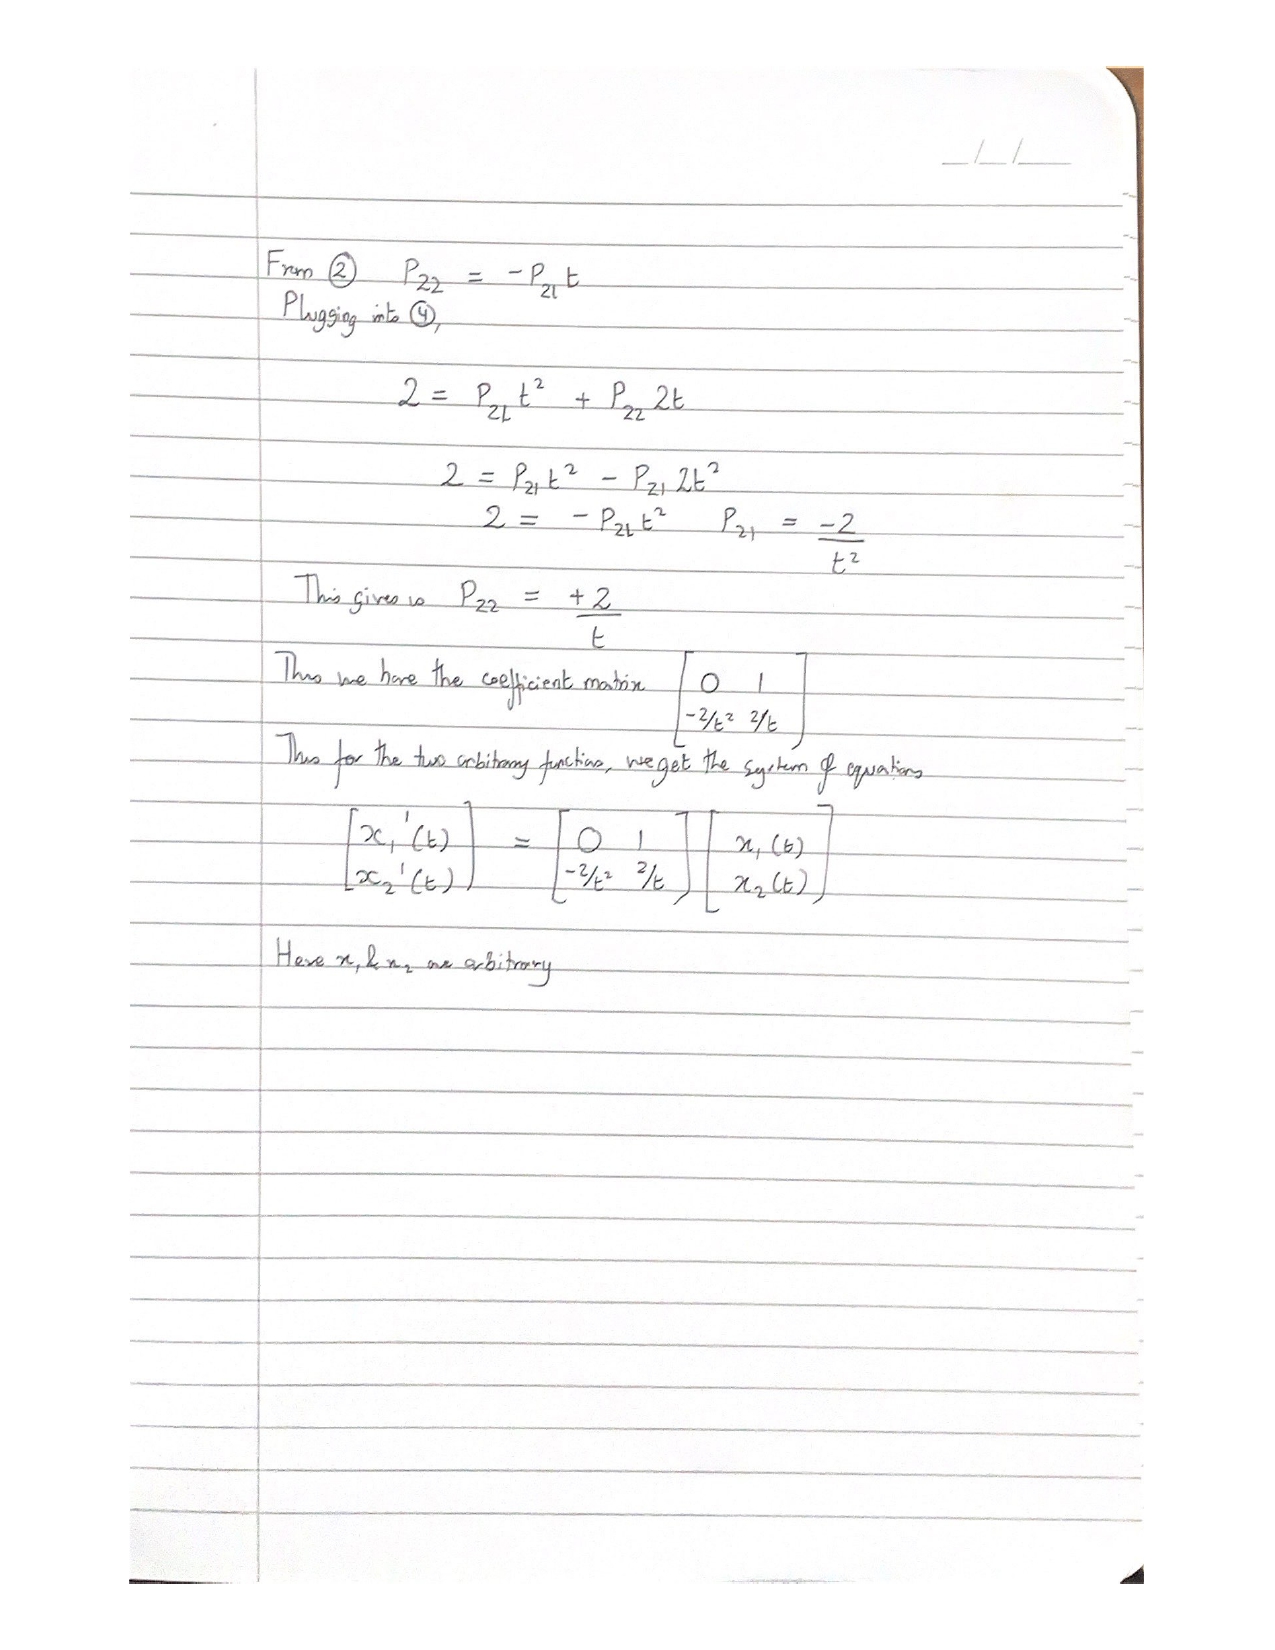 _/_/_
From ② P₂₂ = -P₂₁t
Plugging into ④,
2 = P₂₁t² + P₂₂ 2t
2 = P₂₁t² - P₂₁ 2t²
2 = -P₂₁t² P₂₁ = -2/t²
This gives us P₂₂ = +2/t
Thus we have the coefficient matrix [0 1
-2/t² 2/t]
Thus for the two arbitrary functions, we get the system of equations
[x₁'(t) = [0 1 [x₁(t)
x₂'(t)] -2/t² 2/t] x₂(t)]
Here x₁ & x₂ are arbitrary